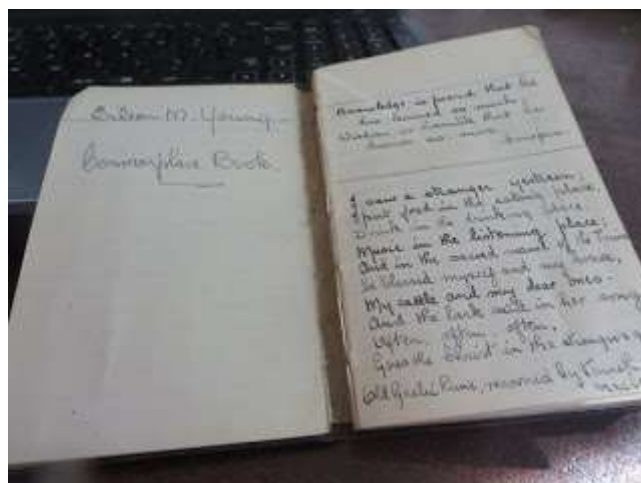 M. Young
Book.
Knowledge is proud that he
has learned so much
Wisdom is humble that he
knows no more.
I saw a stranger yestreen;
I put food in the eating place,
Drink in the drinking place
Music in the listening place;
And in the sacred name of the Triune
He blessed myself and my house,
My cattle and my dear ones.
And the lark said in her song
Often, often, often,
Goes the Christ in the stranger's
Old Gaelic Rune, recorded by